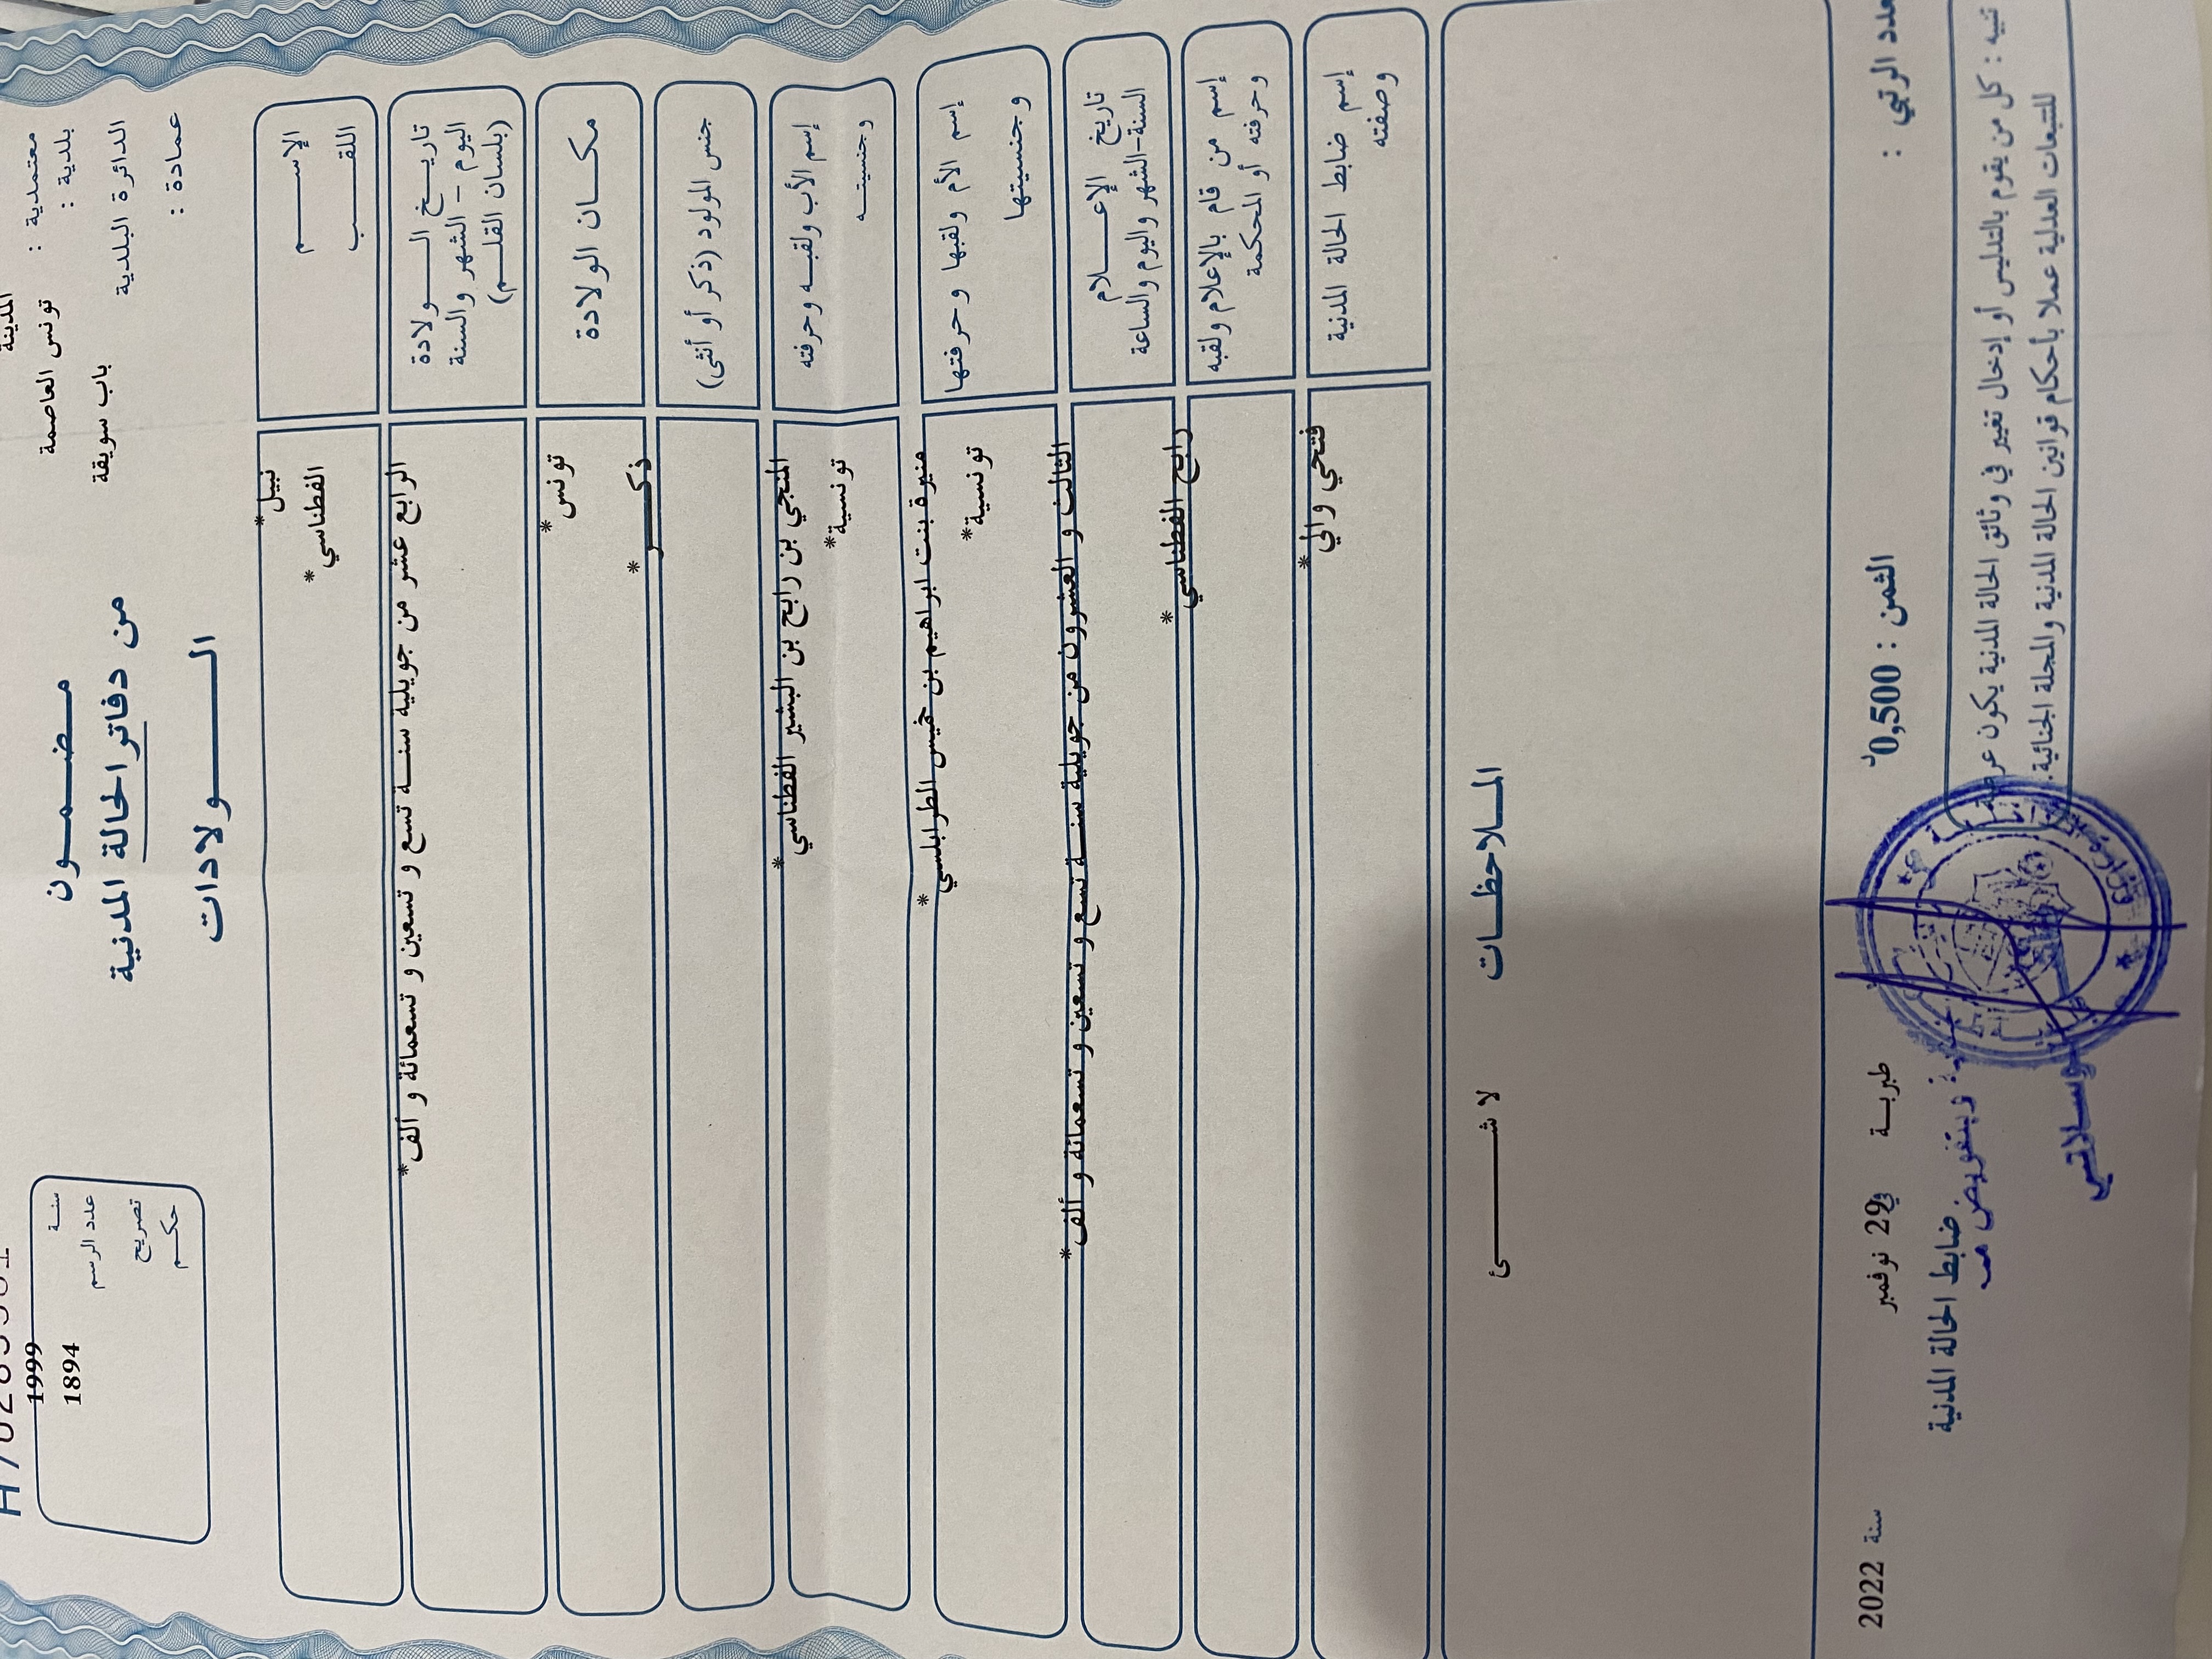 المدينة
معتمدية :
بلدية : تونس العاصمة
الدائرة البلدية باب سويقة
عمادة :
سنة 1999
عدد الرسم 1894
تصريح
حكم
مضمون
من دفاتر الحالة المدنية
الولادات
الإسم نبيل*
اللقب الفطناسي*
تاريخ الولادة
اليوم - الشهر والسنة
(بلسان القلم)
الرابع عشر من جويلية سنة تسع و تسعين و تسعمائة و ألف*
مكان الولادة تونس*
جنس المولود (ذكر أو أنثى) ذكر*
إسم الأب ولقبه وحرفته المنجي بن رابح بن البشير الفطناسي*
وجنسيته تونسية*
إسم الأم ولقبها وحرفتها منيرة بنت ابراهيم بن خميس الطرابلسي*
وجنسيتها تونسية*
تاريخ الإعلام
السنة-الشهر واليوم والساعة
الثالث و العشرون من جويلية سنة تسع و تسعين و تسعمائة و ألف*
إسم من قام بالإعلام ولقبه
وحرفته أو المحكمة
رابح الفطناسي*
إسم ضابط الحالة المدنية
وصفته
فتحي والي*
الملاحظات
لا شئ
عدد الرتبي : الثمن : 0,500د
طبربة في 29 نوفمبر سنة 2022
ضابط الحالة المدنية
تنبيه : كل من يقوم بالتدليس أو إدخال تغيير في وثائق الحالة المدنية يكون عرضة
للتبعات العدلية عملا بأحكام قوانين الحالة المدنية والمجلة الجنائية.